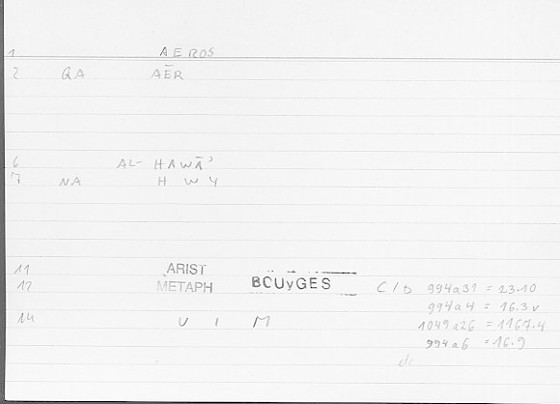 1 AEROS
2 QA AĒR
6 AL- HAWĀʾ
7 NA H W Y
11 ARIST
12 METAPH BOUyGES C/D 994a31 = 23.10
994a4 = 16.3 v
14 U I M 1049a26 = 1167.4
994a6 = 16.9